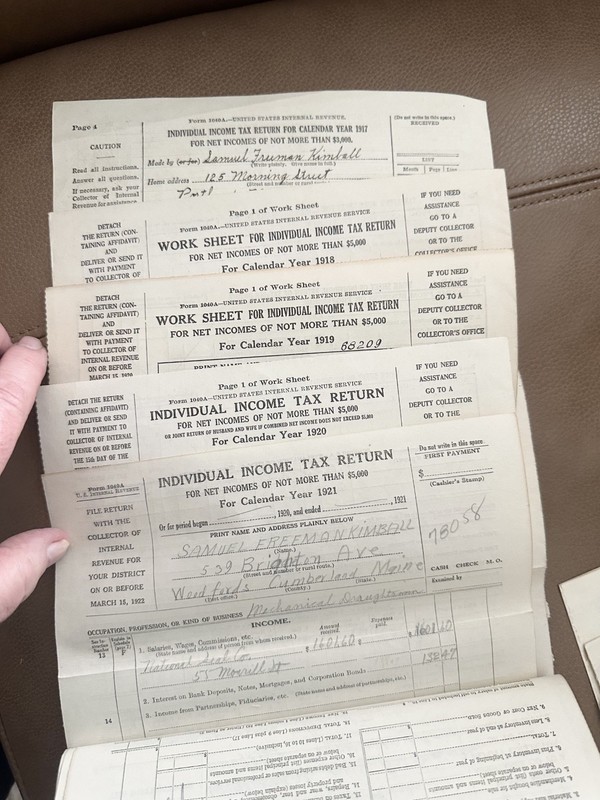 Page 4
CAUTION
Read all instructions.
Answer all questions.
If necessary, ask your
Collector of Internal
Revenue for assistance.
Form 1040A.—UNITED STATES INTERNAL REVENUE.
INDIVIDUAL INCOME TAX RETURN FOR CALENDAR YEAR 1917
FOR NET INCOMES OF NOT MORE THAN $3,000.
Made by (or for) Samuel Freeman Kimball
(Write plainly. Give name in full.)
Home address 125 Morning Street
(Street and number or rural route.)
(Do not write in this space.)
RECEIVED
LIST
Month Page Line
DETACH
THE RETURN (CON-
TAINING AFFIDAVIT)
AND
DELIVER OR SEND IT
WITH PAYMENT
TO COLLECTOR OF
Page 1 of Work Sheet
Form 1040A.—UNITED STATES INTERNAL REVENUE SERVICE
WORK SHEET FOR INDIVIDUAL INCOME TAX RETURN
FOR NET INCOMES OF NOT MORE THAN $5,000
For Calendar Year 1918
IF YOU NEED
ASSISTANCE
GO TO A
DEPUTY COLLECTOR
OR TO THE
COLLECTOR'S OFFICE
DETACH
THE RETURN (CON-
TAINING AFFIDAVIT)
AND
DELIVER OR SEND IT
WITH PAYMENT
TO COLLECTOR OF
INTERNAL REVENUE
ON OR BEFORE
MARCH 15, 1920
Page 1 of Work Sheet
Form 1040A—UNITED STATES INTERNAL REVENUE SERVICE
WORK SHEET FOR INDIVIDUAL INCOME TAX RETURN
FOR NET INCOMES OF NOT MORE THAN $5,000
For Calendar Year 1919 68209
IF YOU NEED
ASSISTANCE
GO TO A
DEPUTY COLLECTOR
OR TO THE
COLLECTOR'S OFFICE
DETACH THE RETURN
(CONTAINING AFFIDAVIT)
AND DELIVER OR SEND
IT WITH PAYMENT TO
COLLECTOR OF INTERNAL
REVENUE ON OR BEFORE
THE 15th DAY OF THE
Page 1 of Work Sheet
Form 1040A—UNITED STATES INTERNAL REVENUE SERVICE
INDIVIDUAL INCOME TAX RETURN
FOR NET INCOMES OF NOT MORE THAN $5,000
OR JOINT RETURN OF HUSBAND AND WIFE IF COMBINED NET INCOME DOES NOT EXCEED $5,000
For Calendar Year 1920
IF YOU NEED
ASSISTANCE
GO TO A
DEPUTY COLLECTOR
OR TO THE
Form 1040A
U. S. INTERNAL REVENUE
FILE RETURN
WITH THE
COLLECTOR OF
INTERNAL
REVENUE FOR
YOUR DISTRICT
ON OR BEFORE
MARCH 15, 1922
INDIVIDUAL INCOME TAX RETURN
FOR NET INCOMES OF NOT MORE THAN $5,000
For Calendar Year 1921
Or for period begun , 1920, and ended , 1921
PRINT NAME AND ADDRESS PLAINLY BELOW
SAMUEL FREEMAN KIMBALL
(Name.)
539 Brighton Ave
(Street and number or rural route.)
Woodfords Cumberland Maine
(Post office.) (County.) (State.)
Do not write in this space
FIRST PAYMENT
$
(Cashier's Stamp)
78058
CASH CHECK M. O.
Examined by
OCCUPATION, PROFESSION, OR KIND OF BUSINESS Mechanical Draughtsman
INCOME.
13
1. Salaries, Wages, Commissions, etc.
(State name and address of person from whom received.)
Amount received.
Expenses paid.
55 Morrill St
$ 1601.60
$ 1601.60
2. Interest on Bank Deposits, Notes, Mortgages, and Corporation Bonds
14
3. Income from Partnerships, Fiduciaries, etc. (State name and address of partnership, etc.)